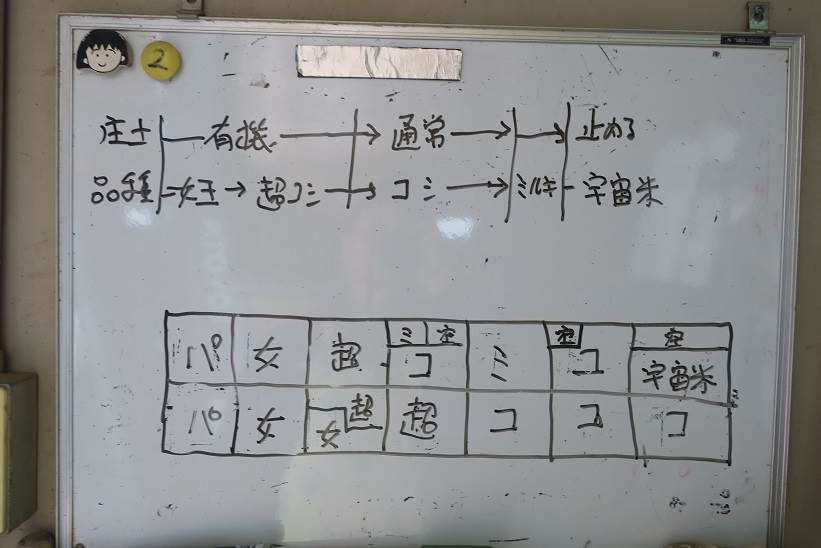 2
庄土 有機 → 通常 → → 止める
品種 女王 → 超コシ → コシ → ミルキー 宇宙米
パ 女 超 ミ 空 コ ミ 空 コ 空 宇宙米
パ 女 女 超 超 コ コ コ